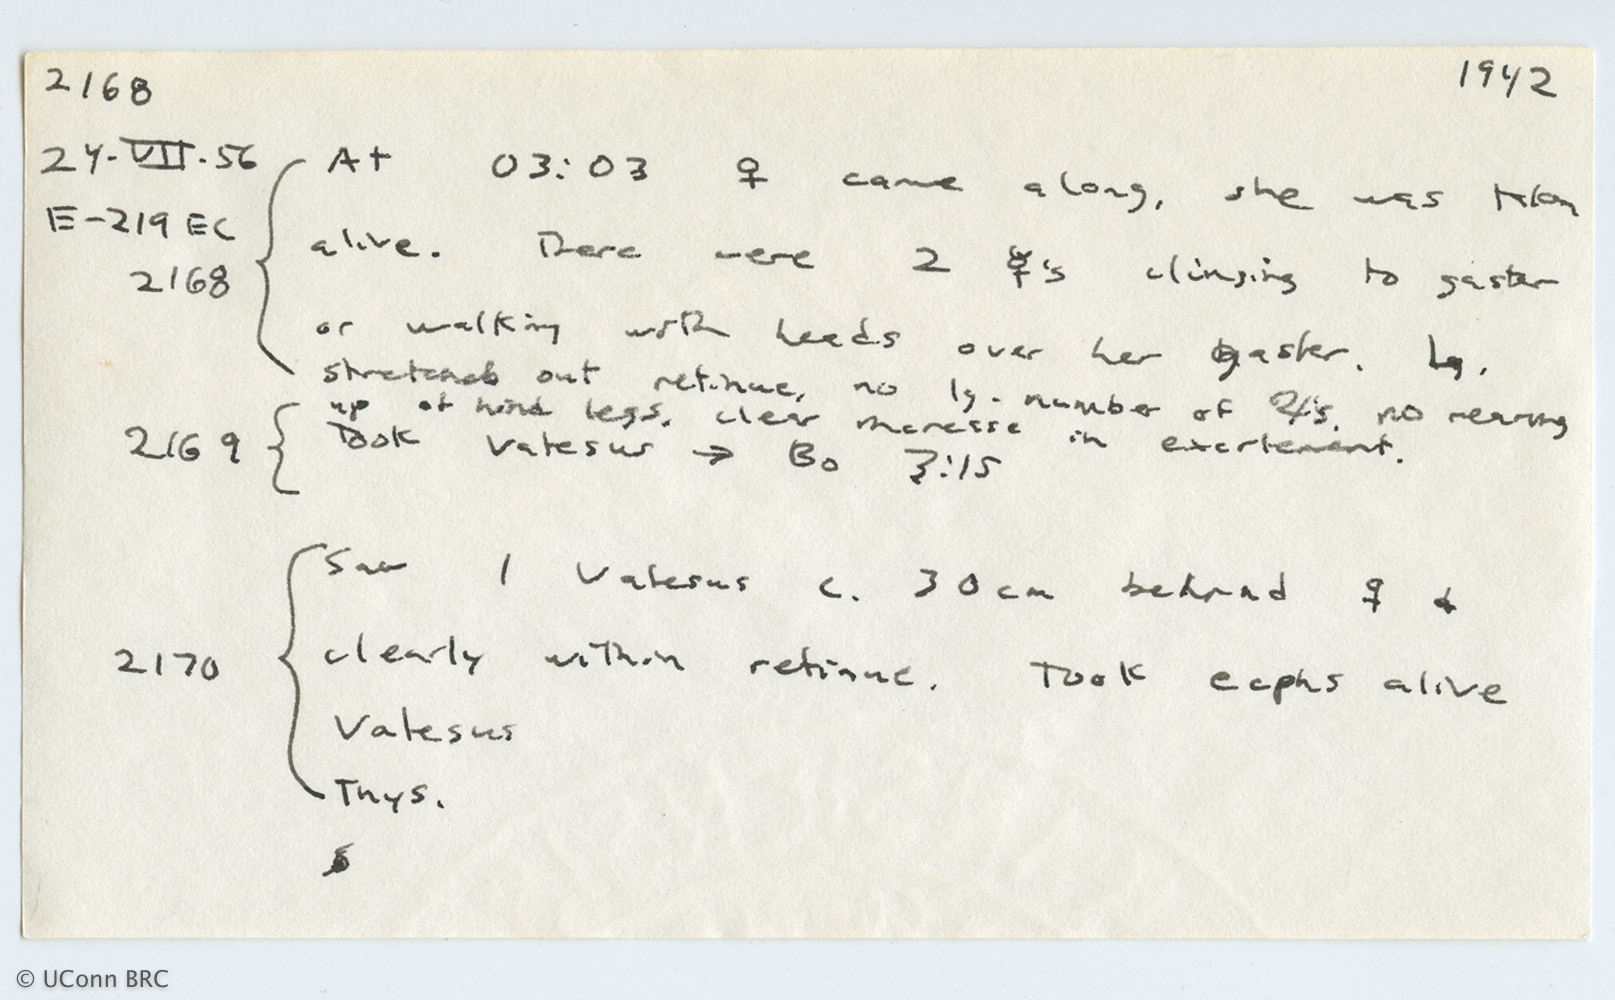 2168
1942
24-VII-56
E-219 EC
2168
At 03:03 ♀ came along, she was taken
alive. There were 2 ☿'s clinging to gaster
or walking with heads over her gaster. Lg.
stretched out retinue, no lg. number of ♃'s, no rearing
up of hind legs. clear increase in excitement.
2169
Took Vatesus → Bo 3:15
2170
Saw 1 Vatesus c. 30 cm behind ♀ &
clearly within retinue. Took ecphs alive
Vatesus
Thys.
© UConn BRC